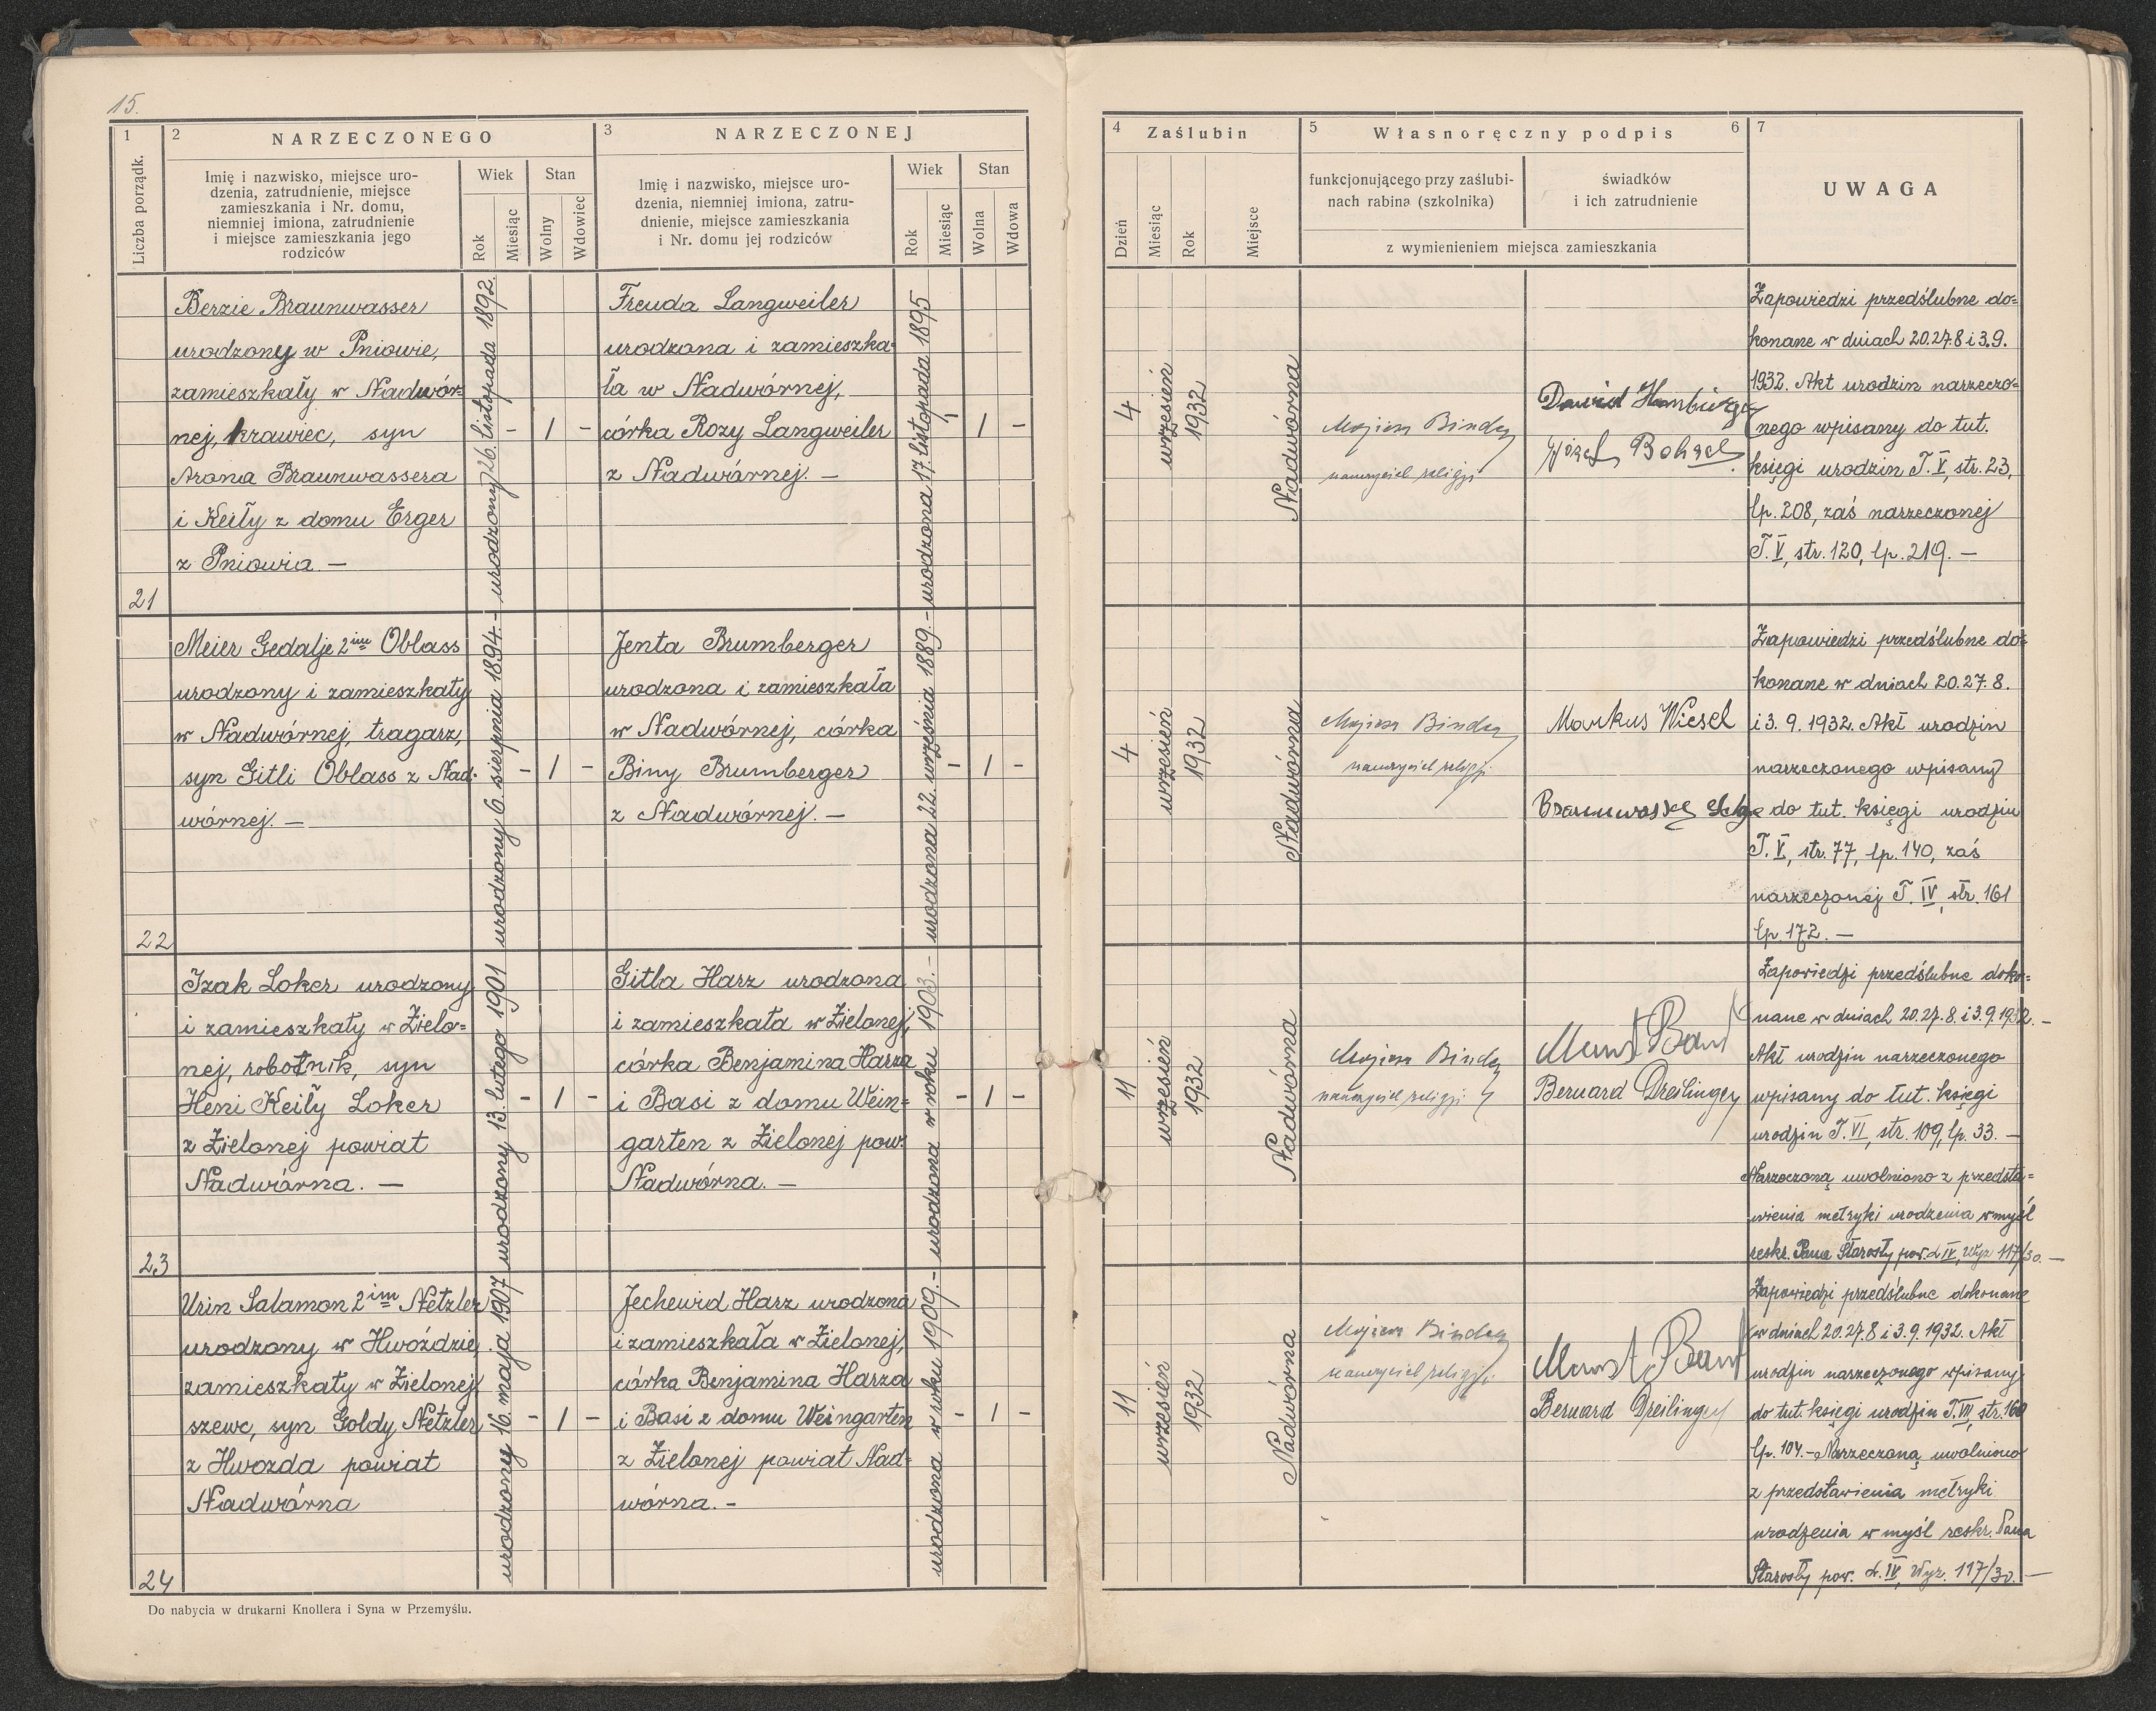 15.
1
2
NARZECZONEGO
3
NARZECZONEJ
Liczba porządk.
Imię i nazwisko, miejsce uro-
dzenia, zatrudnienie, miejsce
zamieszkania i Nr. domu,
niemniej imiona, zatrudnienie
i miejsce zamieszkania jego
rodziców
Wiek
Stan
Rok
Miesiąc
Wolny
Wdowiec
Imię i nazwisko, miejsce uro-
dzenia, niemniej imiona, zatru-
dnienie, miejsce zamieszkania
i Nr. domu jej rodziców
Wiek
Stan
Rok
Miesiąc
Wolna
Wdowa
4
Zaślubin
5
Własnoręczny podpis
6
7
Dzień
Miesiąc
Rok
Miejsce
funkcjonującego przy zaślubi-
nach rabina (szkolnika)
świadków
i ich zatrudnienie
z wymienieniem miejsca zamieszkania
UWAGA
21
Berzie Braunwasser
urodzony w Pniowie,
zamieszkały w Nadwór-
nej, krawiec, syn
Arona Braunwassera
i Keiły z domu Erger
z Pniowia. —
urodzony 26. listopada 1892.
- 1 -
Freuda Langweiler
urodzona i zamieszka-
ła w Nadwórnej,
córka Rozy Langweiler
z Nadwórnej. —
urodzona 17. listopada 1895
- 1 -
4
wrzesień
1932
Nadwórna
Mojżesz Binder
nauczyciel religji
Dawid Hamburger
Józef
Zapowiedzi przedślubne do=
konane w dniach 20.27.8 i 3.9.
1932. Akt urodzin narzeczo=
nego wpisany do tut.
księgi urodzin T. V, str. 23,
lp. 208, zaś narzeczonej
T. V, str. 120, lp. 219. —
22
Meier Gedalje 2im Oblass
urodzony i zamieszkały
w Nadwórnej, tragarz,
syn Gitli Oblass z Nad-
wórnej. —
urodzony 6. sierpnia 1894. —
- 1 -
Jenta Brumberger
urodzona i zamieszkała
w Nadwórnej, córka
Biny Brumberger
z Nadwórnej. —
urodzona 22. września 1889. —
- 1 -
4
wrzesień
1932
Nadwórna
Mojżesz Binder
nauczyciel religji
Markus Wiesel
Braunwasser
Zapowiedzi przedślubne do=
konane w dniach 20.27.8.
i 3. 9. 1932. Akt urodzin
narzeczonego wpisany
do tut. księgi urodzin
T. V, str. 77, lp. 140, zaś
narzeczonej T. IV, str. 161
lp. 172. —
23
Izak Loker urodzony
i zamieszkały w Zielo=
nej, robotnik, syn
Heni Keiły Loker
z Zielonej powiat
Nadwórna. —
urodzony 13. lutego 1901
- 1 -
Gitla Harz urodzona
i zamieszkała w Zielonej,
córka Benjamina Harza
i Basi z domu Wein=
garten z Zielonej pow.
Nadwórna. —
urodzona w roku 1903. —
- 1 -
11
wrzesień
1932
Nadwórna
Mojżesz Binder
nauczyciel religji
Bernard Dreilinger
Zapowiedzi przedślubne doko=
nane w dniach 20.27.8. i 3.9.1932. —
Akt urodzin narzeczonego
wpisany do tut. księgi
urodzin T. VI, str. 109, lp. 33. —
Narzeczoną uwolniono z przedsta=
wienia metryki urodzenia w myśl
reskr. Pana Starosty pow. L. IV, Wyz. 117/30. —
24
Urin Salamon 2im Netzler
urodzony w Hwoździe,
zamieszkały w Zielonej
szewc, syn Goldy Netzler
z Hwozda powiat
Nadwórna
urodzony 16. maja 1907
- 1 -
Jechewid Harz urodzona
i zamieszkała w Zielonej,
córka Benjamina Harza
i Basi z domu Weingarten
z Zielonej powiat Nad=
wórna. -
urodzona w roku 1909. —
- 1 -
11
wrzesień
1932
Nadwórna
Mojżesz Binder
nauczyciel religji.
Bernard Dreilinger
Zapowiedzi przedślubne dokonane
w dniach 20.27.8 i 3.9.1932. Akt
urodzin narzeczonego wpisany
do tut. księgi urodzin T. VII, str. 160
lp. 104. — Narzeczoną uwolniono
z przedstawienia metryki
urodzenia w myśl reskr. Pana
Starosty pow. L. IV, Wyz. 117/30. —
Do nabycia w drukarni Knollera i Syna w Przemyślu.